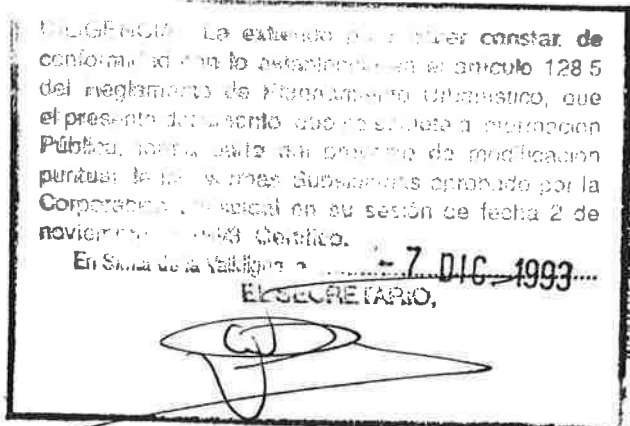 DILIGENCIA. La extiendo para hacer constar, de
conformidad con lo establecido en el artículo 128.5
del Reglamento de Planeamiento Urbanístico, que
el presente documento que se somete a información
Pública, forma parte del proyecto de modificación
puntual de las Normas Subsidiarias aprobado por la
Corporación Municipal en su sesión de fecha 2 de
noviembre 1993 Certifico.
En Simat de la Valldigna, a - 7 DIC. 1993
EL SECRETARIO,